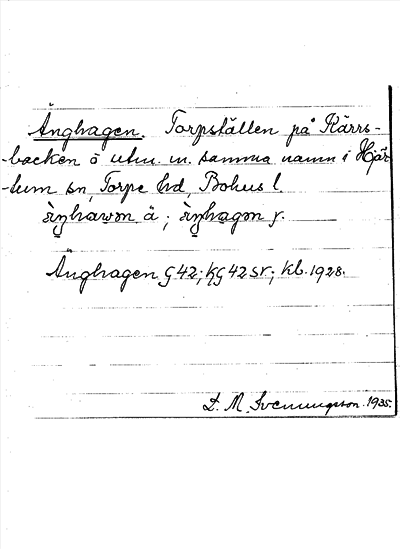 Änghagen. Torpställen på Kärrs-
-backen å utm. m. samma namn i Hjär
-tum sn, Torpe hd, Bohus l.
ä̀ŋhawən ä ; ä̀ŋhagən y.
Änghagen G 42; KG 42 sr; kb. 1928.
D. M. Svenningsson. 1935.